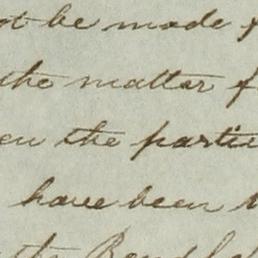 not be made f
the matter f
en the partie
have been
the Bond